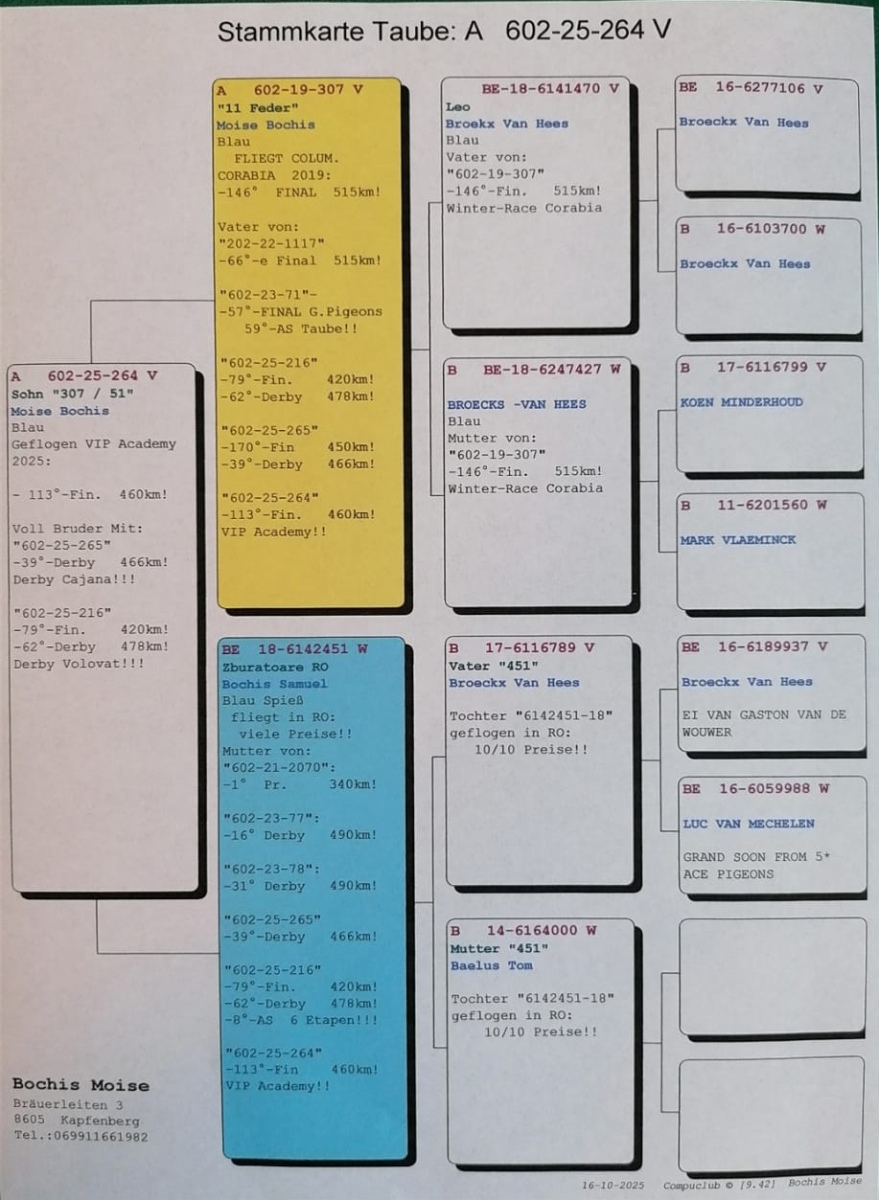 Stammkarte Taube: A 602-25-264 V
A 602-25-264 V
Sohn "307 / 51"
Moise Bochis
Blau
Geflogen VIP Academy
2025:
- 113°-Fin. 460km!
Voll Bruder Mit:
"602-25-265"
-39°-Derby 466km!
Derby Cajana!!!
"602-25-216"
-79°-Fin. 420km!
-62°-Derby 478km!
Derby Volovat!!!
A 602-19-307 V
"11 Feder"
Moise Bochis
Blau
FLIEGT COLUM.
CORABIA 2019:
-146° FINAL 515km!
Vater von:
"202-22-1117"
-66°-e Final 515km!
"602-23-71"-
-57°-FINAL G.Pigeons
59°-AS Taube!!
"602-25-216"
-79°-Fin. 420km!
-62°-Derby 478km!
"602-25-265"
-170°-Fin 450km!
-39°-Derby 466km!
"602-25-264"
-113°-Fin. 460km!
VIP Academy!!
BE 18-6142451 W
Zburatoare RO
Bochis Samuel
Blau Spieß
fliegt in RO:
viele Preise!!
Mutter von:
"602-21-2070":
-1° Pr. 340km!
"602-23-77":
-16° Derby 490km!
"602-23-78":
-31° Derby 490km!
"602-25-265"
-39°-Derby 466km!
"602-25-216"
-79°-Fin. 420km!
-62°-Derby 478km!
-8°-AS 6 Etapen!!!
"602-25-264"
-113°-Fin 460km!
VIP Academy!!
BE-18-6141470 V
Leo
Broekx Van Hees
Blau
Vater von:
"602-19-307"
-146°-Fin. 515km!
Winter-Race Corabia
B BE-18-6247427 W
BROECKS -VAN HEES
Blau
Mutter von:
"602-19-307"
-146°-Fin. 515km!
Winter-Race Corabia
B 17-6116789 V
Vater "451"
Broeckx Van Hees
Tochter "6142451-18"
geflogen in RO:
10/10 Preise!!
B 14-6164000 W
Mutter "451"
Baelus Tom
Tochter "6142451-18"
geflogen in RO:
10/10 Preise!!
BE 16-6277106 V
Broeckx Van Hees
B 16-6103700 W
Broeckx Van Hees
B 17-6116799 V
KOEN MINDERHOUD
B 11-6201560 W
MARK VLAEMINCK
BE 16-6189937 V
Broeckx Van Hees
EI VAN GASTON VAN DE
WOUWER
BE 16-6059988 W
LUC VAN MECHELEN
GRAND SOON FROM 5*
ACE PIGEONS
Bochis Moise
Bräuerleiten 3
8605 Kapfenberg
Tel.:069911661982
16-10-2025 Compuclub © [9.42] Bochis Moise